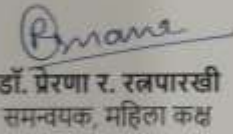 डॉ. प्रेरणा र. रत्नपारखी
समन्वयक, महिला कक्ष